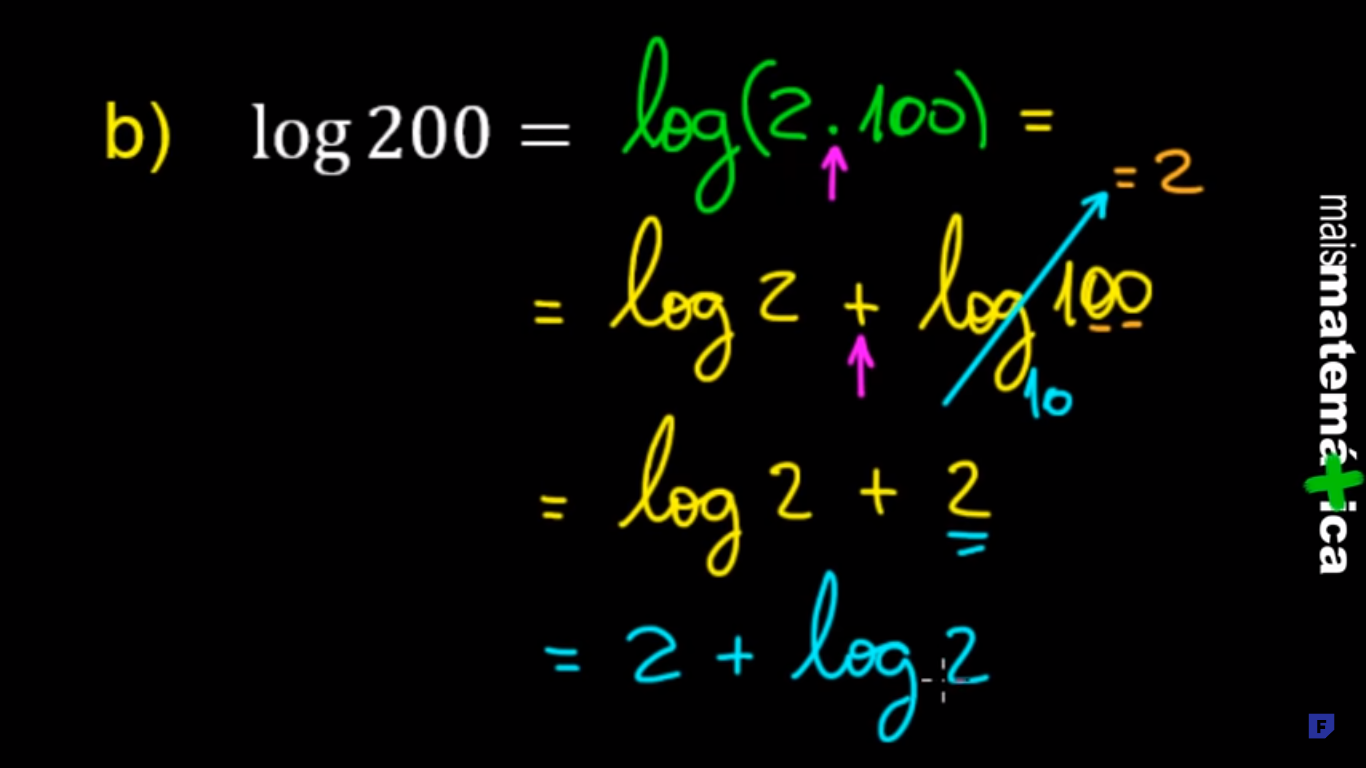 b) log 200 = log(2.100) =
= 2
= log 2 + log 100
10
= log 2 + 2
= 2 + log 2
maismatemática
F